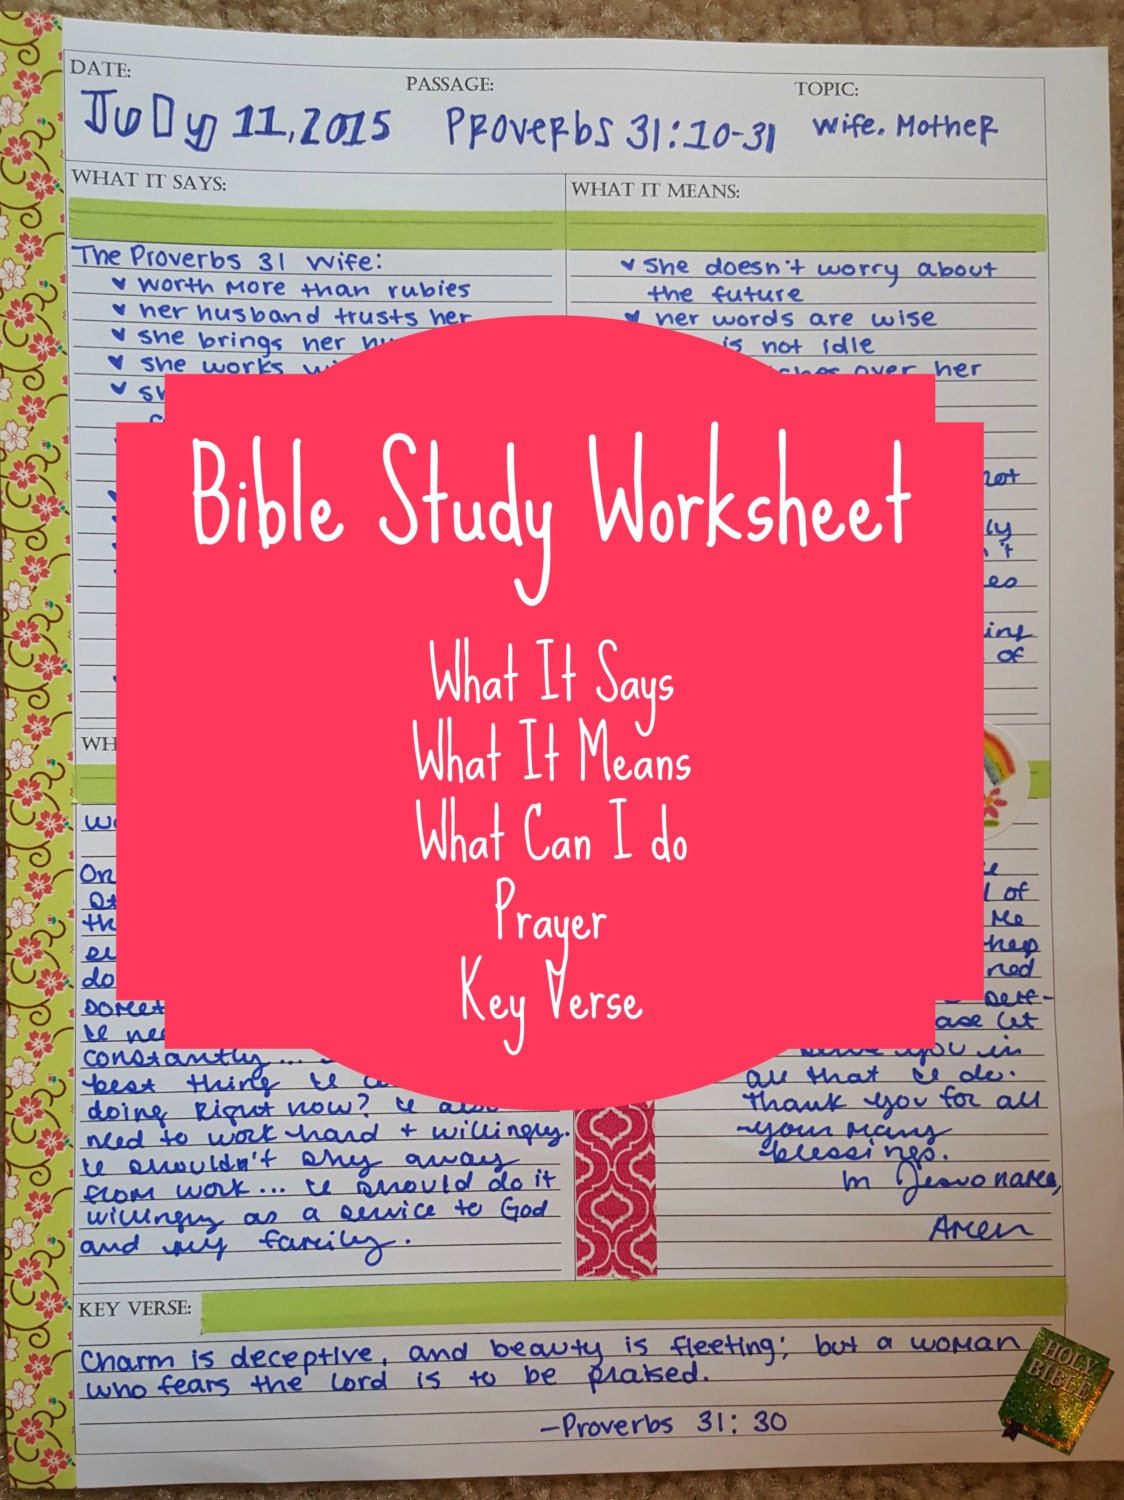 DATE:
PASSAGE:
TOPIC:
July 11, 2015
Proverbs 31:10-31
Wife. Mother
WHAT IT SAYS:
The Proverbs 31 Wife:
worth more than rubies
her husband trusts her
she brings her
she works
WHAT IT MEANS:
she doesn't worry about
the future
her words are wise
is not idle
over her
not
of
Bible Study Worksheet
What It Says
What It Means
What Can I do
Prayer
Key Verse
constantly...
best thing I
doing right now? I also
need to work hard + willingly.
I shouldn't shy away
from work... I should do it
willingly as a service to God
and my family.
of
me
help
self-
let
serve you in
all that I do.
Thank you for all
your many
blessings.
In Jesus name,
Amen
KEY VERSE:
Charm is deceptive, and beauty is fleeting; but a woman
who fears the Lord is to be praised.
-Proverbs 31:30
HOLY
BIBLE